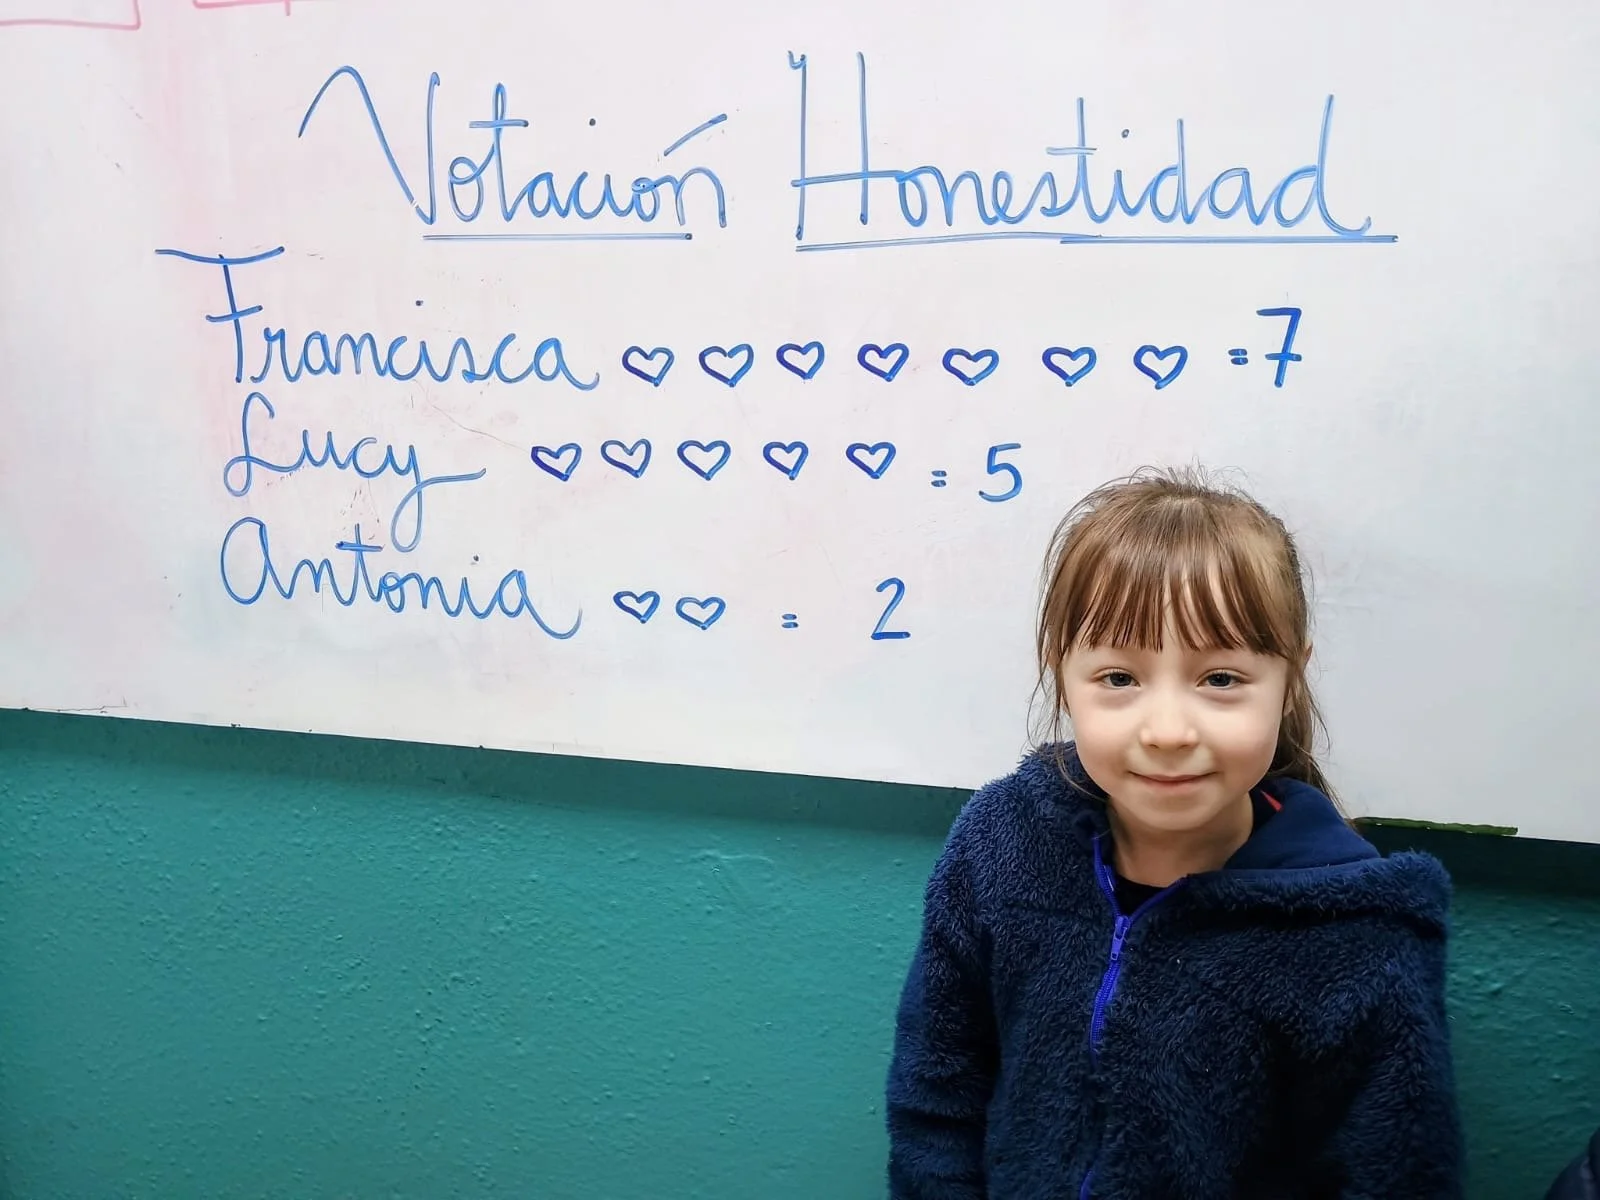 Votación Honestidad
Francisca ♡ ♡ ♡ ♡ ♡ ♡ ♡ = 7
Lucy ♡ ♡ ♡ ♡ ♡ = 5
Antonia ♡ ♡ = 2